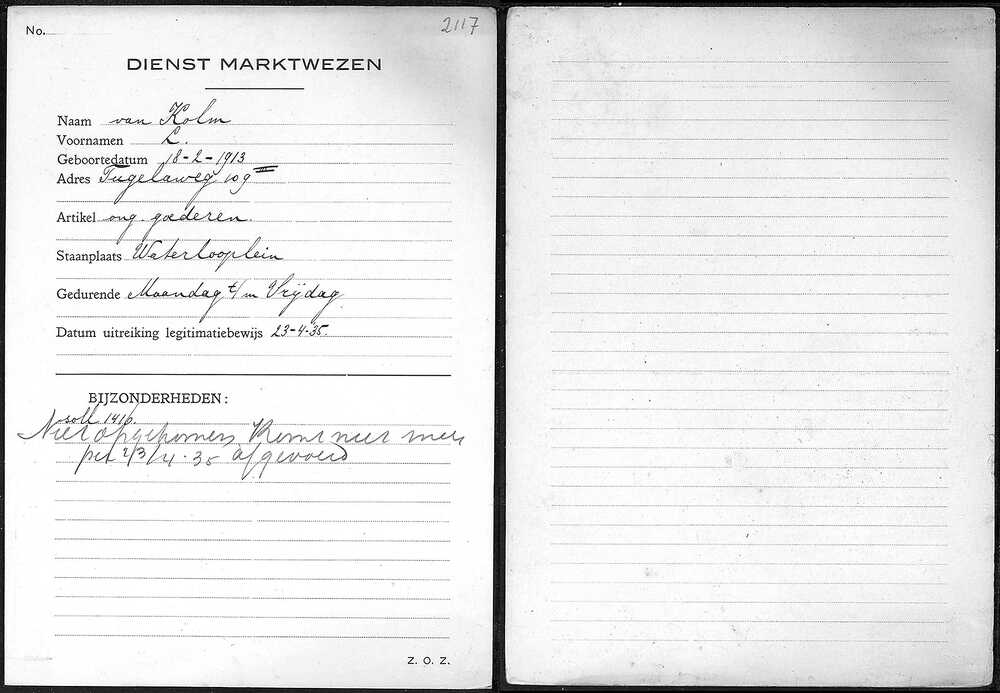 No. 2117
DIENST MARKTWEZEN
Naam van Kolm
Voornamen L.
Geboortedatum 18-2-1913
Adres Tugelaweg 109 III
Artikel ong. goederen.
Staanplaats Waterlooplein
Gedurende Maandag t/m Vrijdag
Datum uitreiking legitimatiebewijs 23-4-35.
BIJZONDERHEDEN:
soll 1416.
Niet opgekomen, Komt niet meer
per 2/3/4-35 afgevoerd
Z. O. Z.